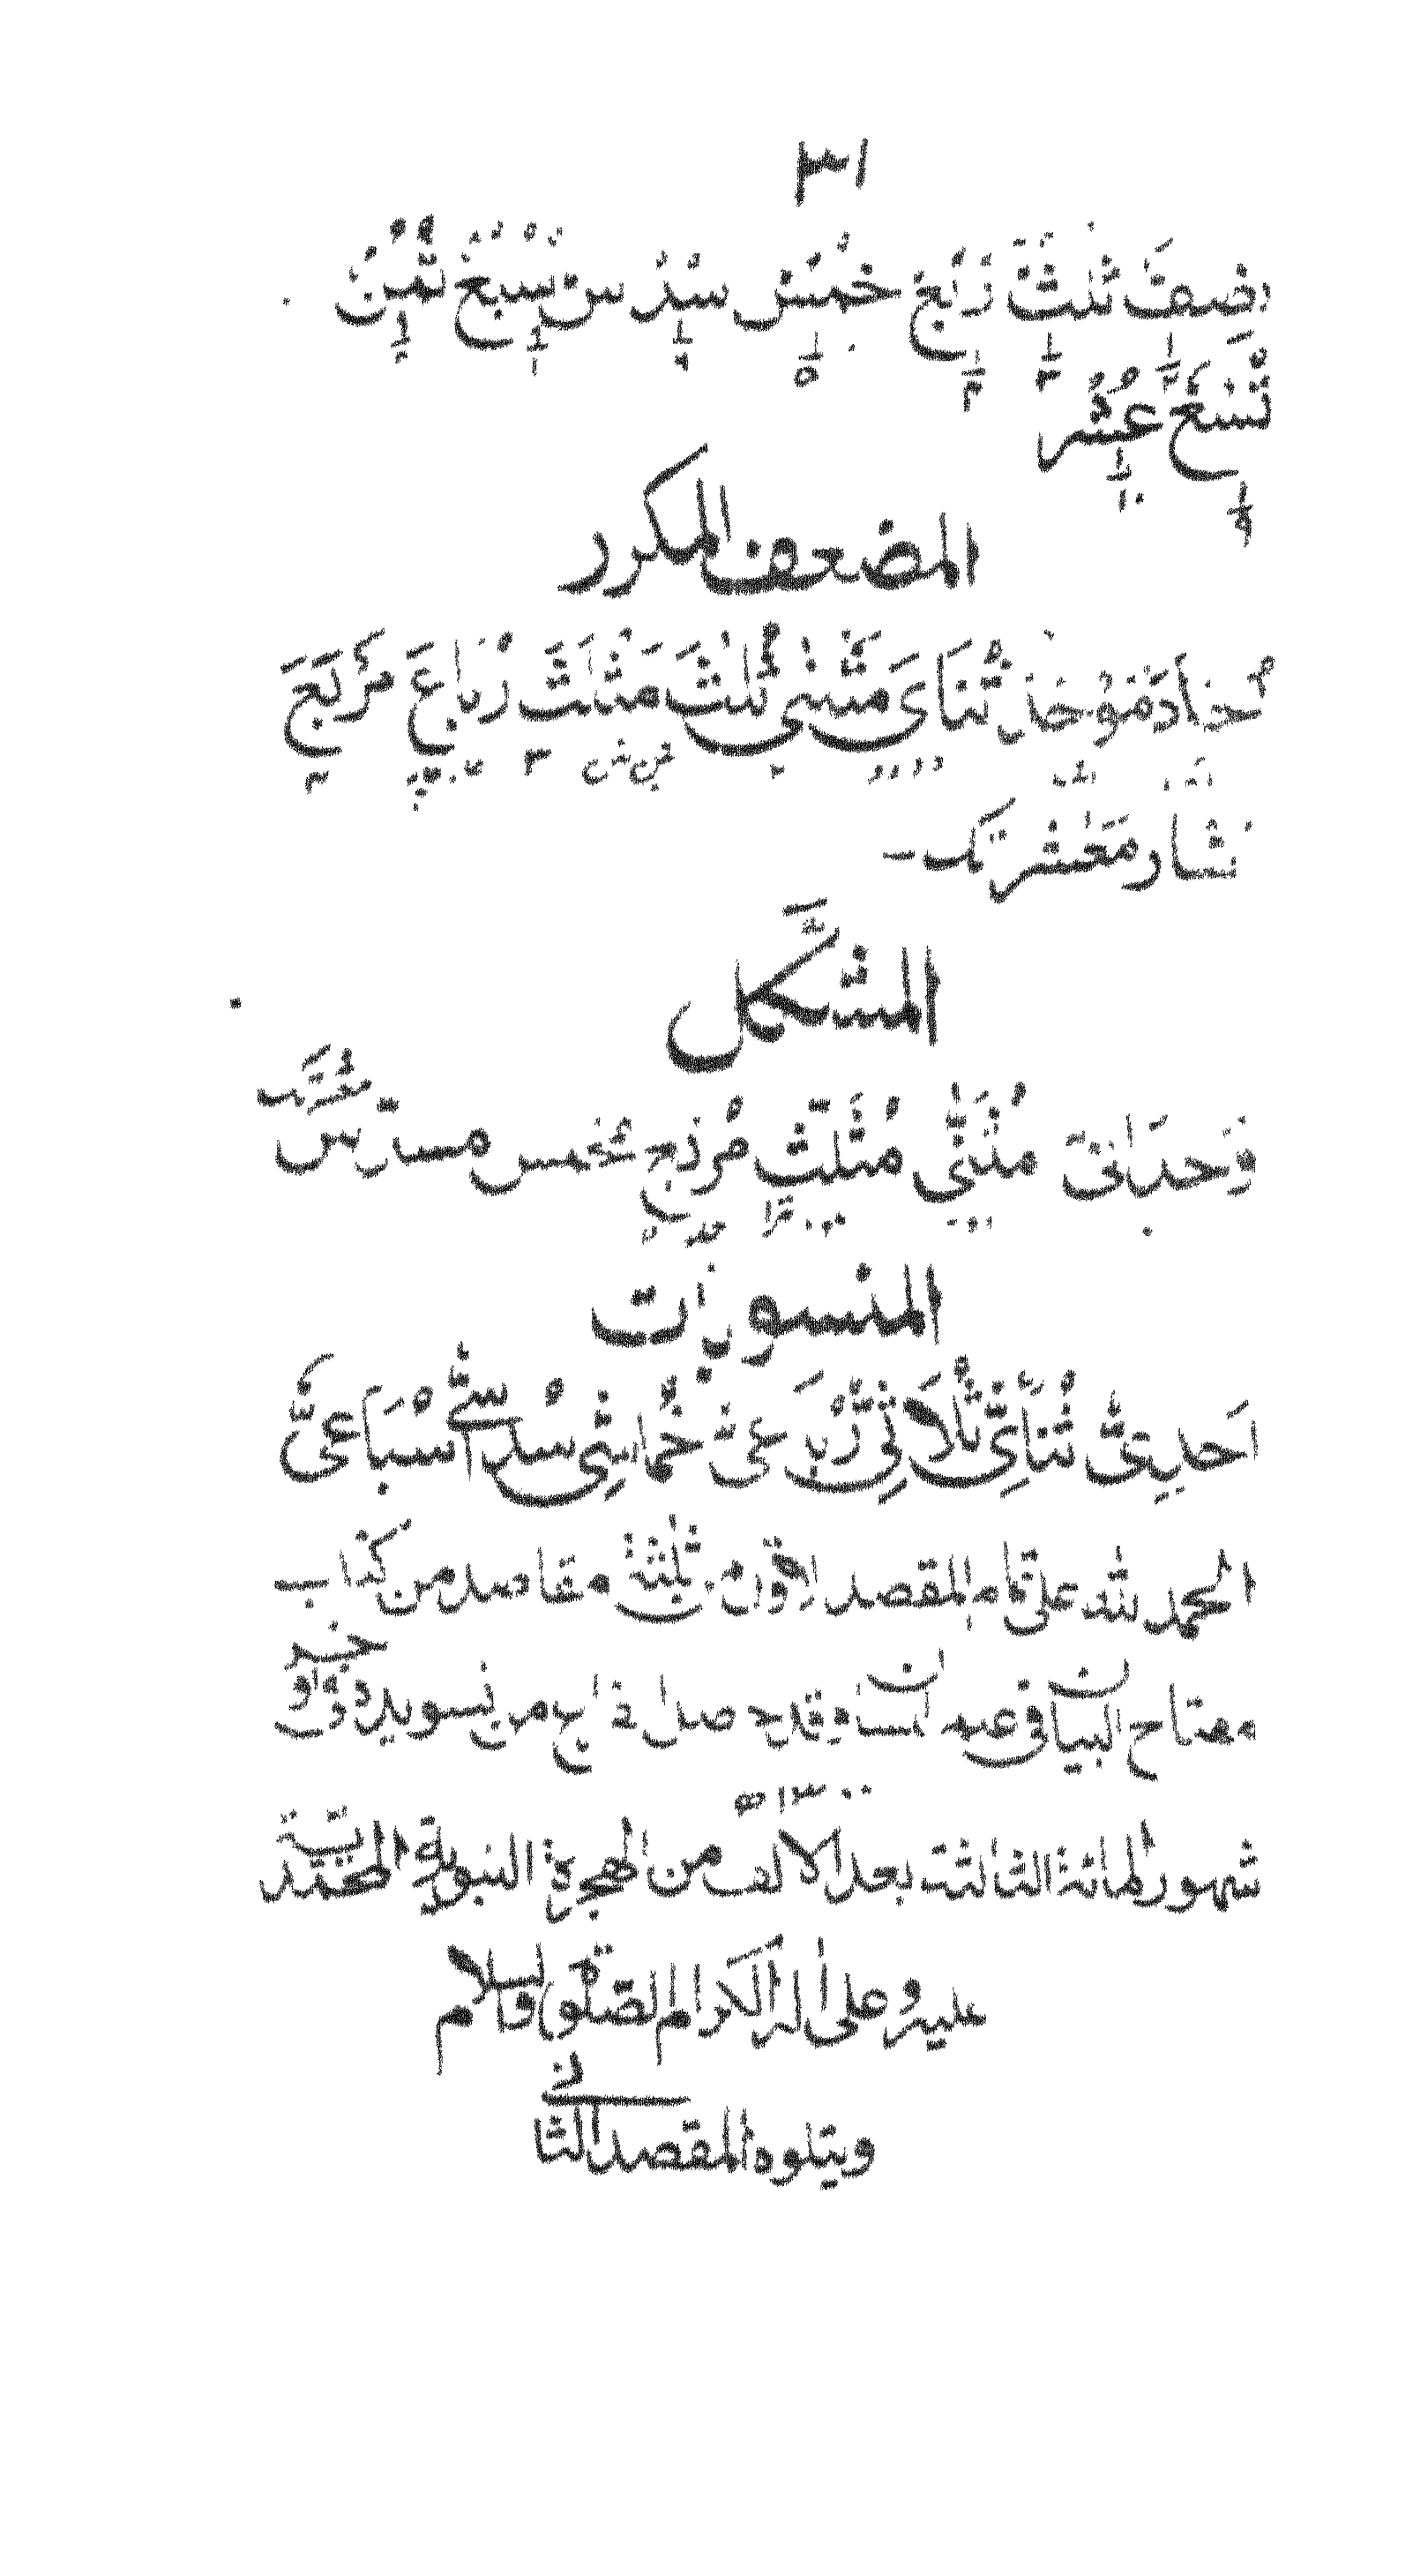 ٣١
نصف ثلث ربع خمس سدس سبع ثمن
١/٢ ١/٣ ١/٤ ١/٥ ١/٦
تسع عشر
١/٩ ١/١٠
المضعف المكرر
أحاد موحد ثناء مثنى ثلاث مثلث رباع مربع
معشر
المشكل
وحدانى مثنى مثلث مربع مخمس مسدس
المنسوبات
احديّ ثنائيّ ثلاثيّ رباعيّ خماسيّ سداسيّ سباعيّ
الحمد لله على تمام المقصد الاول من ثلثة مقاصد من كتاب
مفتاح البيان فى اللسان وقد حصل من تسويده
١٣٠٠ه
شهور المائة الثالثة بعد الالف من الهجرة النبوية المحمدية
عليه وعلى اله الكرام الصلوة والسلام
ويتلوه المقصد الثانى